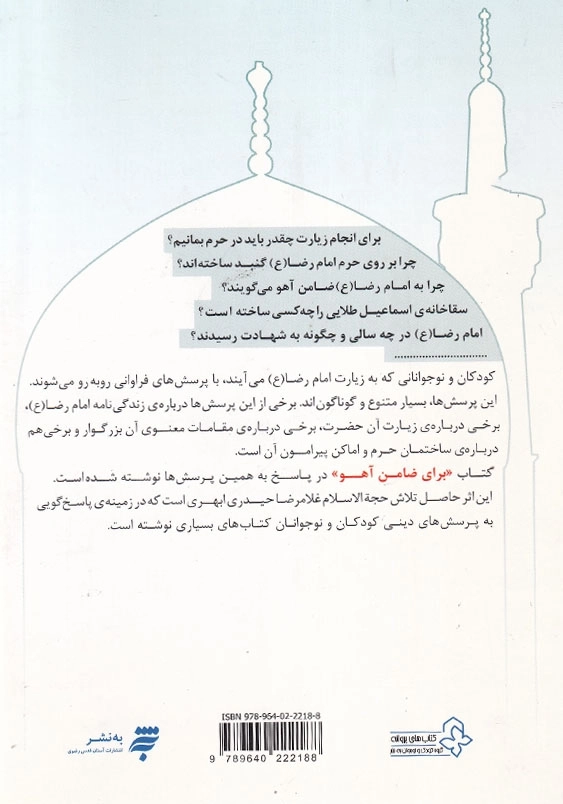 برای انجام زیارت چقدر باید در حرم بمانیم؟
چرا بر روی حرم امام رضا(ع) گنبد ساخته‌اند؟
چرا به امام رضا(ع) ضامن آهو می‌گویند؟
سقاخانه‌ی اسماعیل طلایی را چه کسی ساخته است؟
امام رضا(ع) در چه سالی و چگونه به شهادت رسیدند؟
................................
کودکان و نوجوانانی که به زیارت امام رضا(ع) می‌آیند، با پرسش‌های فراوانی روبه‌رو می‌شوند.
این پرسش‌ها، بسیار متنوع و گوناگون‌اند. برخی از این پرسش‌ها درباره‌ی زندگی‌نامه امام رضا(ع)،
برخی درباره‌ی زیارت آن حضرت، برخی درباره‌ی مقامات معنوی آن بزرگوار و برخی هم
درباره‌ی ساختمان حرم و اماکن پیرامون آن است.
کتاب «برای ضامن آهو» در پاسخ به همین پرسش‌ها نوشته شده است.
این اثر حاصل تلاش حجة الاسلام غلامرضا حیدری ابهری است که در زمینه‌ی پاسخ‌گویی
به پرسش‌های دینی کودکان و نوجوانان کتاب‌های بسیاری نوشته است.
به‌نشر
انتشارات آستان قدس رضوی
ISBN 978-964-02-2218-8
9 789640 222188
کتاب‌های پروانه
گروه کودک و نوجوان به‌نشر